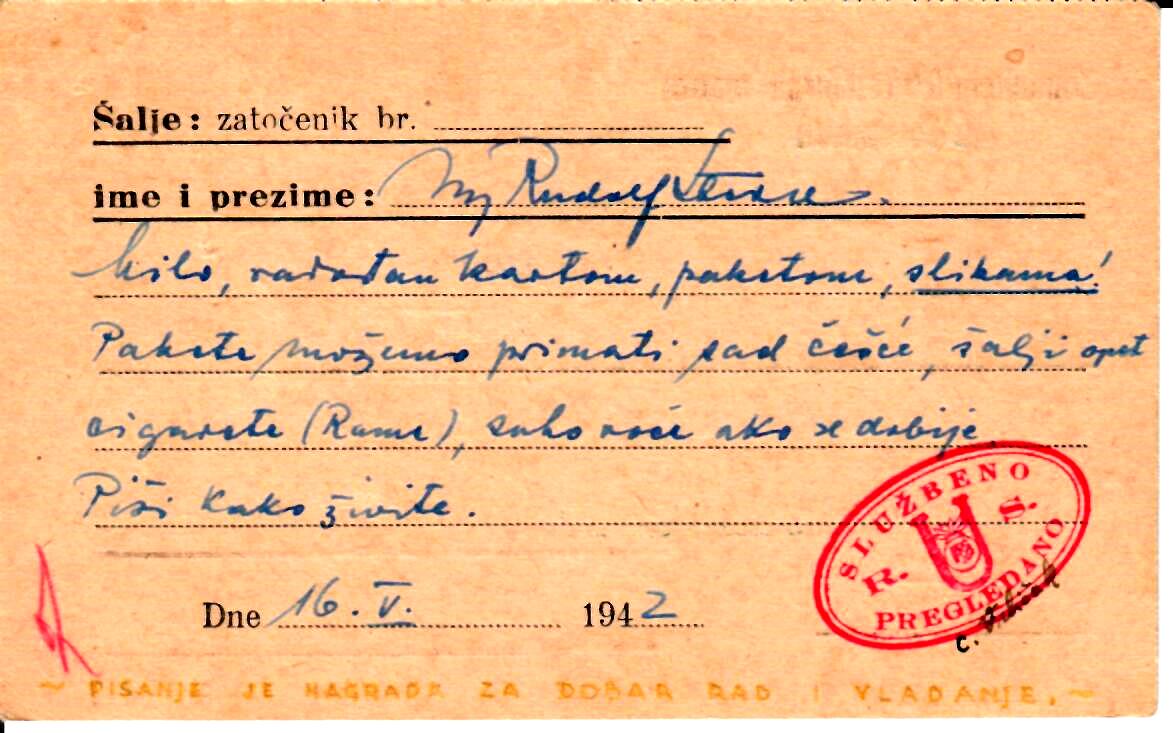 Šalje: zatočenik br.
ime i prezime: Rudolf
Milo, radostan kartom, paketom, slikama!
Pakete možemo primati sad češće, šalji opet
cigarete (Rame), suho voće ako se dobije.
Piši kako živite.
SLUŽBENO
R. U S.
PREGLEDANO
Dne 16. V. 1942
~ PISANJE JE NAGRADA ZA DOBAR RAD I VLADANJE. ~